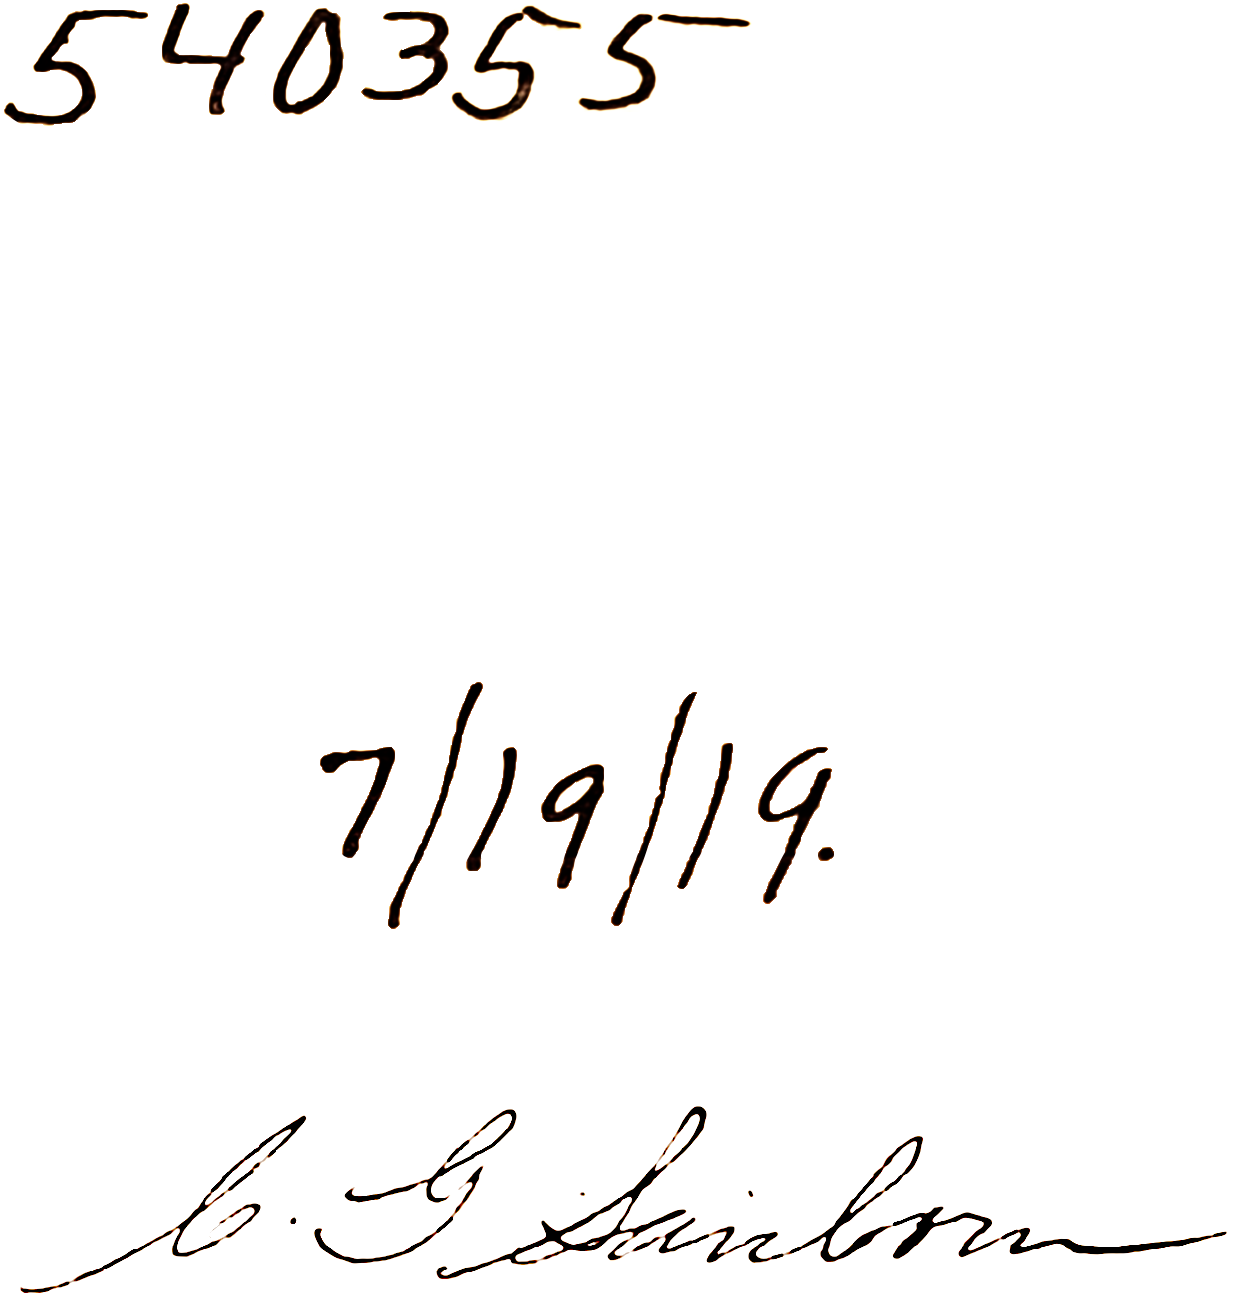 540355
7/19/19.
C. G Sanborn